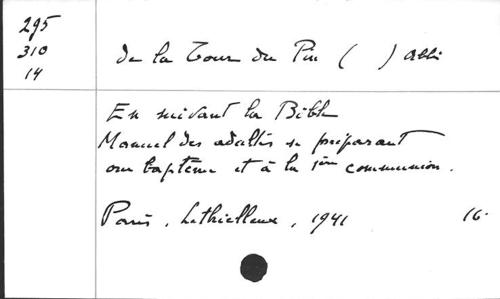 295
310
14
de la Tour du Pin ( ) abbé
En suivant la Bible
Manuel des adultes se préparant
au baptême et à la 1ère communion.
Paris, Lethielleux, 1941 16.